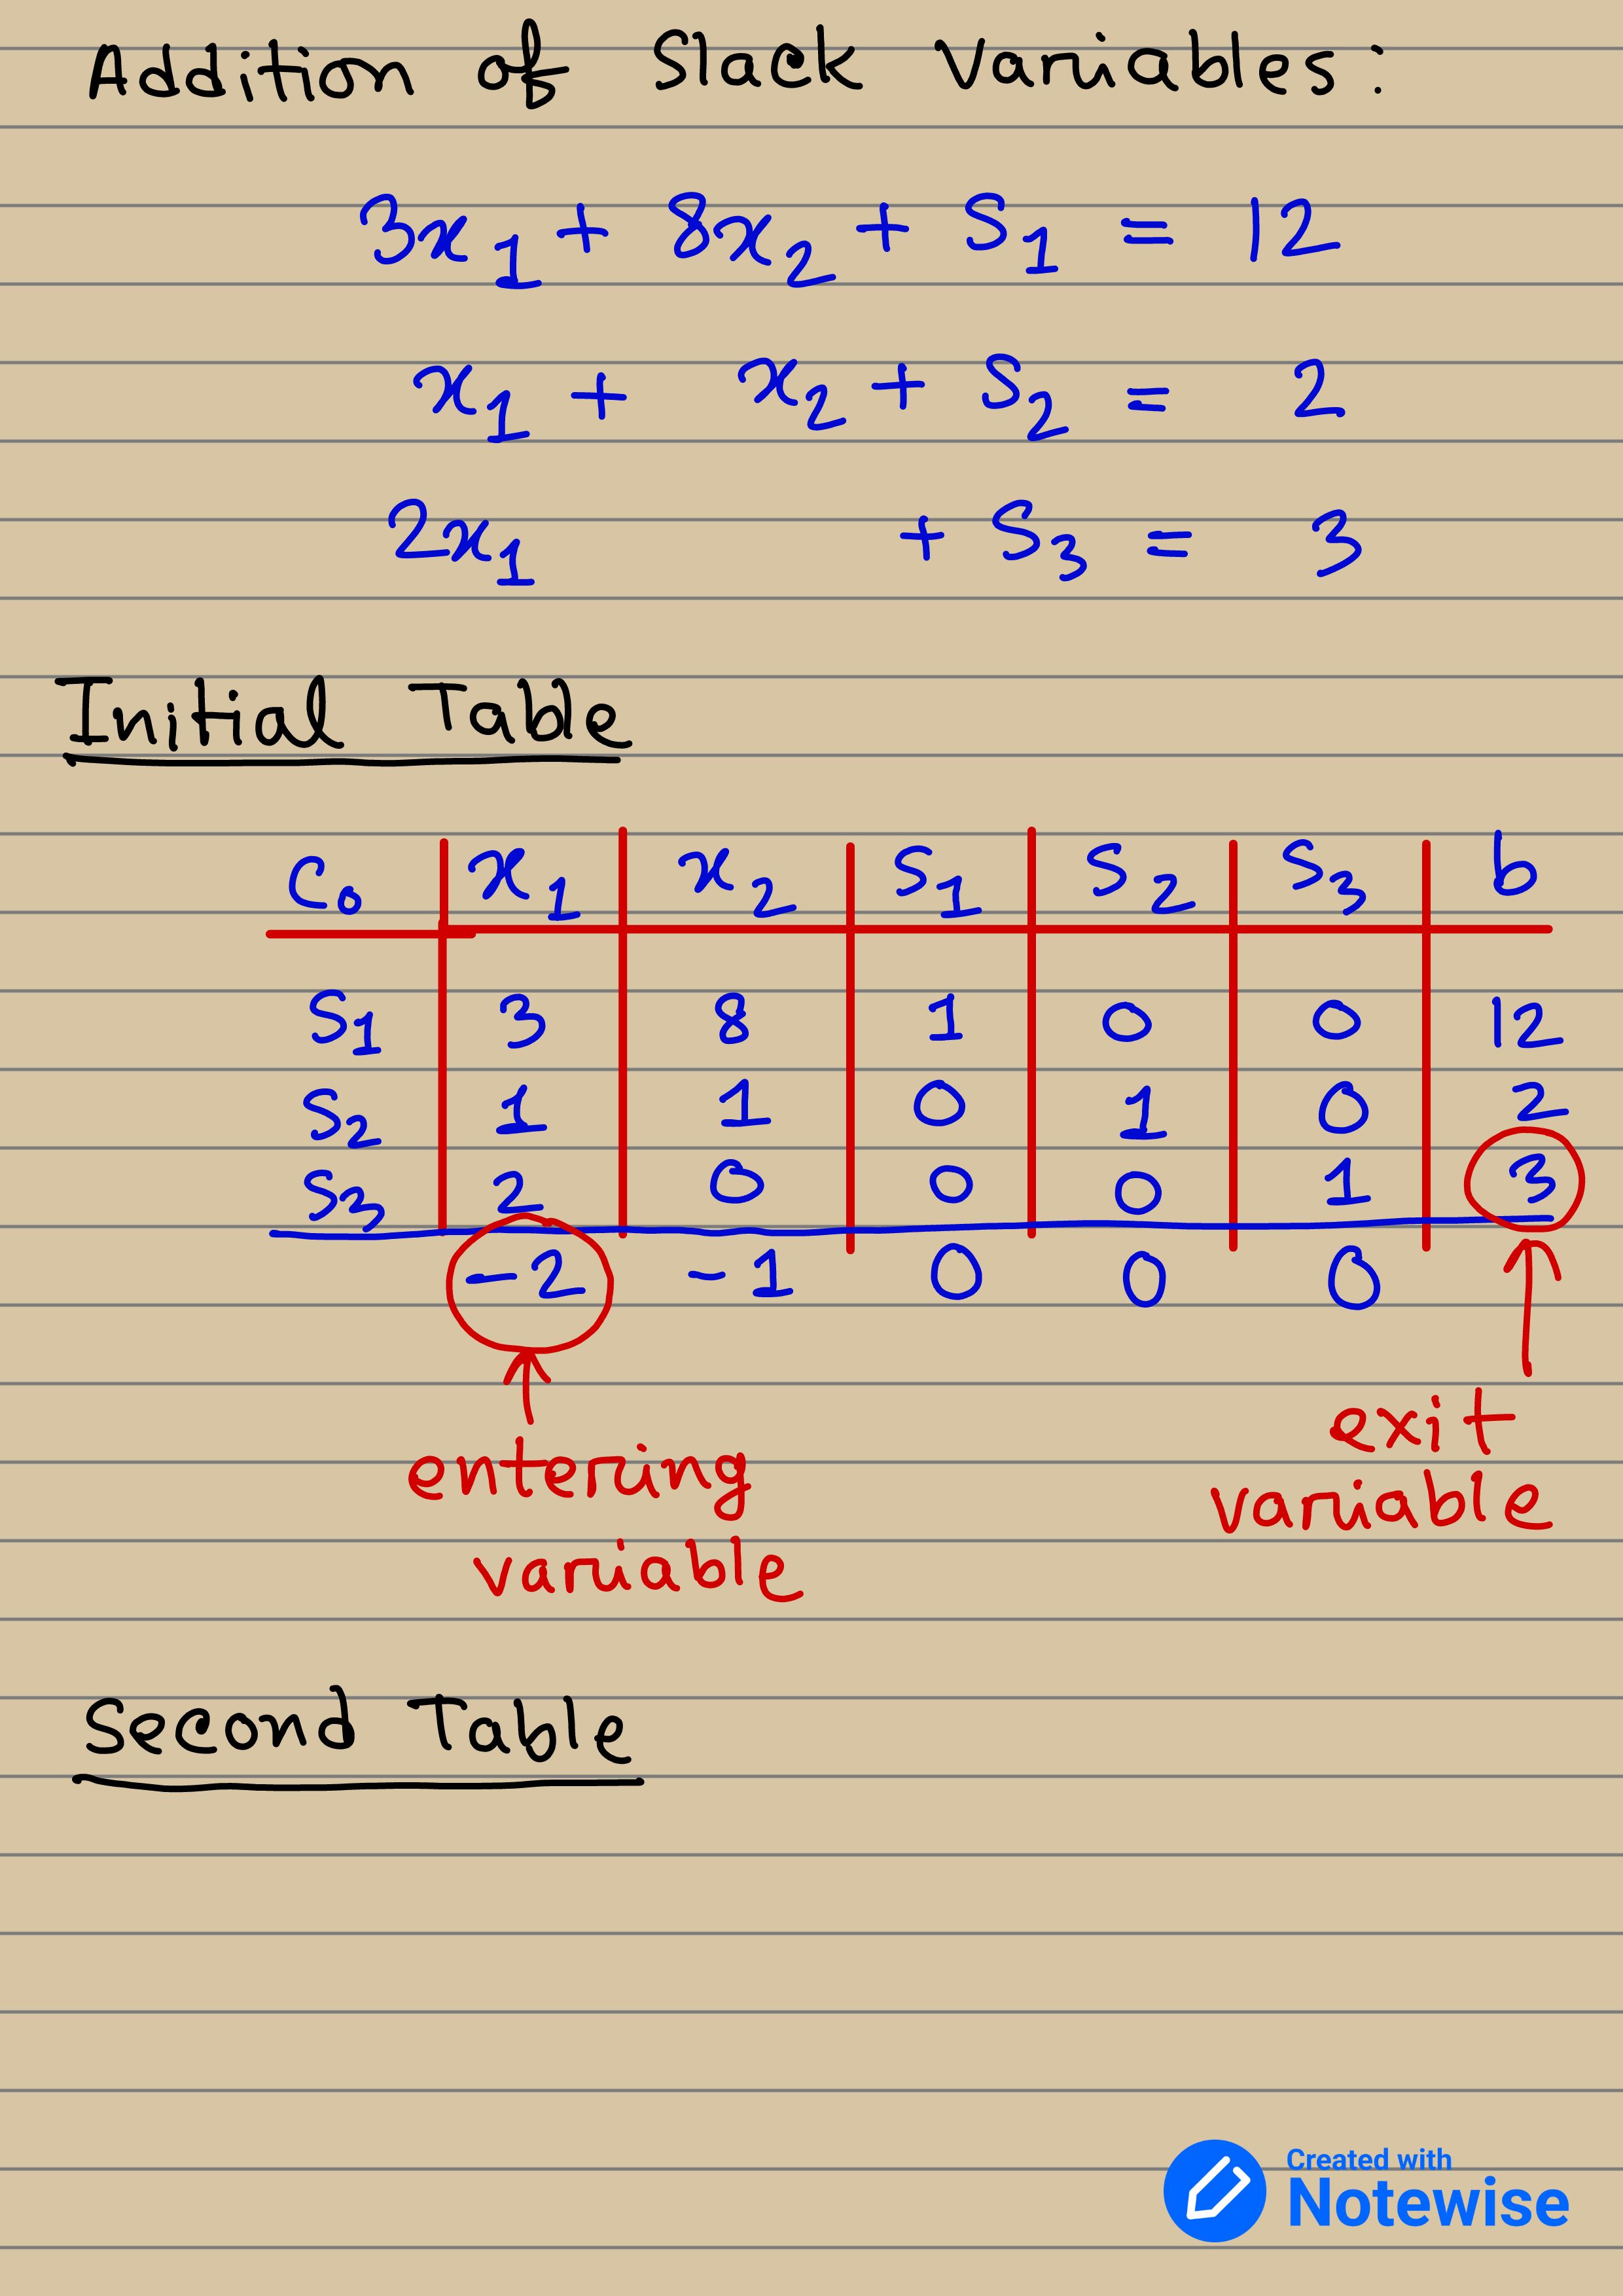 Addition of Slack Variables:
3x₁ + 8x₂ + S₁ = 12
x₁ + x₂ + S₂ = 2
2x₁ + S₃ = 3
Initial Table
C₀ x₁ x₂ S₁ S₂ S₃ b
S₁ 3 8 1 0 0 12
S₂ 1 1 0 1 0 2
S₂ 2 0 0 0 1 3
-2 -1 0 0 0
entering
variable
exit
variable
Second Table
Created with
Notewise